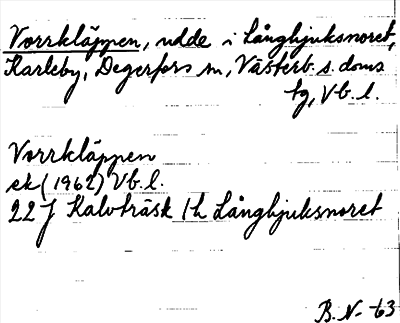 Vorrkläppen, udde i Långhjuksnoret,
Karleby, Degerfors sn, Västerb. s. doms
tg, Vb. l.
Vorrkläppen
ek (1962) Vb. l.
22 J Kalvträsk 1h Långhjuksnoret
B. N- 63